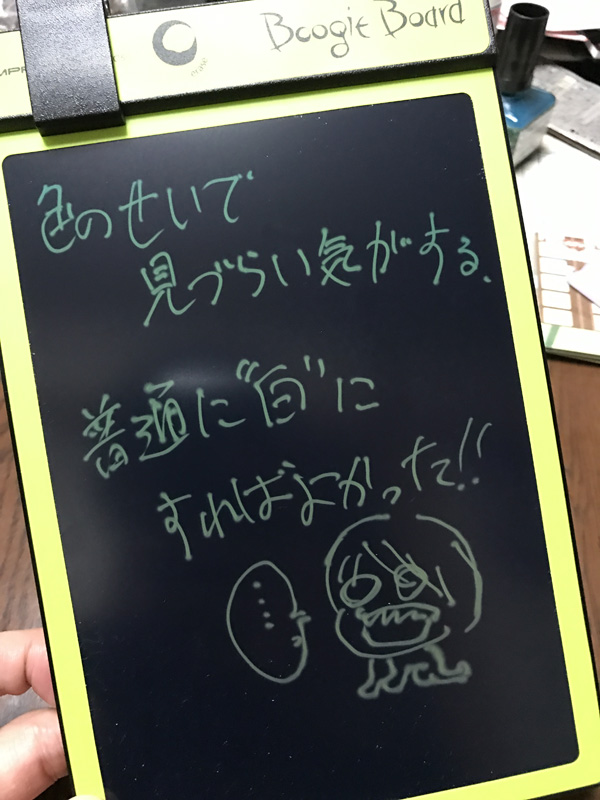 Boogie Board
色のせいで
見づらい気がする、
普通に"白"に
すればよかった!!